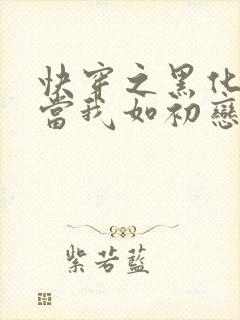 快穿之黑化
當我如初戀
紫若藍